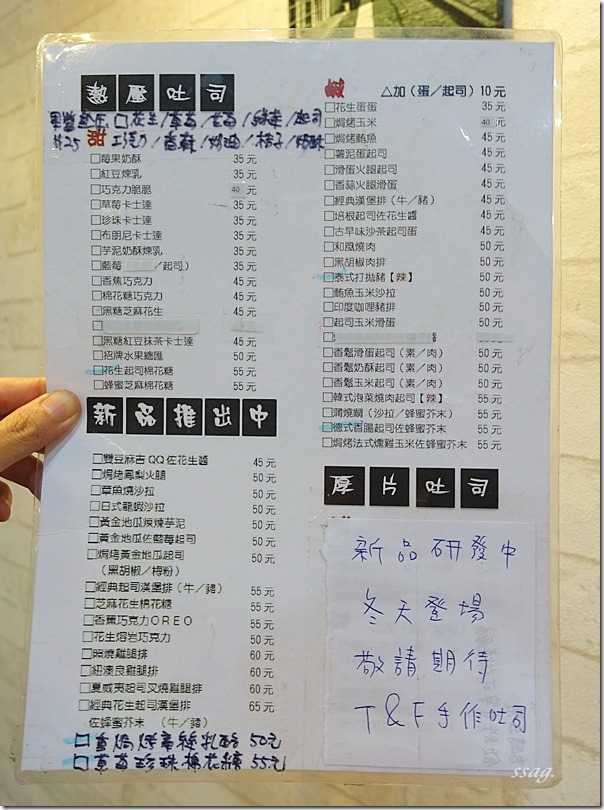 熱壓吐司
#25
甜
莓果奶酥 35元
紅豆煉乳 35元
巧克力脆脆 40元
草莓卡士達 35元
珍珠卡士達 35元
布朗尼卡士達 35元
芋泥奶酥煉乳 35元
藍莓 /起司) 35元
香蕉巧克力 45元
棉花糖巧克力 45元
黑糖芝麻花生 45元
黑糖紅豆抹茶卡士達 45元
招牌水果總匯 50元
花生起司棉花糖 55元
蜂蜜芝麻棉花糖 55元
新品推出中
雙豆麻吉QQ佐花生醬 45元
焗烤鳳梨火腿 50元
章魚燒沙拉 50元
日式龍蝦沙拉 50元
黃金地瓜煉煉芋泥 50元
黃金地瓜佐藍莓起司 50元
焗烤黃金地瓜起司 50元
(黑胡椒/梅粉)
經典起司漢堡排(牛/豬) 55元
芝麻花生棉花糖 55元
香蕉巧克力OREO 55元
花生熔岩巧克力 50元
照燒雞腿排 60元
紐澳良雞腿排 60元
夏威夷起司叉燒雞腿排 60元
經典花生起司漢堡排 65元
佐蜂蜜芥末 (牛/豬)
50元
草莓珍珠棉花糖 55元
鹹 △加(蛋/起司)10元
花生蛋蛋 35元
焗烤玉米 40元
焗烤鮪魚 45元
薯泥蛋起司 45元
滑蛋火腿起司 45元
香蒜火腿滑蛋 45元
經典漢堡排(牛/豬) 45元
培根起司佐花生醬 45元
古早味沙茶起司蛋 45元
和風燒肉 50元
黑胡椒肉排 50元
泰式打拋豬【辣】 50元
鮪魚玉米沙拉 50元
印度咖哩豬排 50元
起司玉米滑蛋 50元
香鬆滑蛋起司(素/肉) 50元
香鬆奶酥起司(素/肉) 50元
香鬆玉米起司(素/肉) 50元
韓式泡菜燒肉起司【辣】 55元
蒲燒鯛(沙拉/蜂蜜芥末) 55元
德式香腸起司佐蜂蜜芥末 55元
焗烤法式燻雞玉米佐蜂蜜芥末 55元
厚片吐司
新品研發中
冬天登場
敬請期待
T&F手作吐司
ssag.